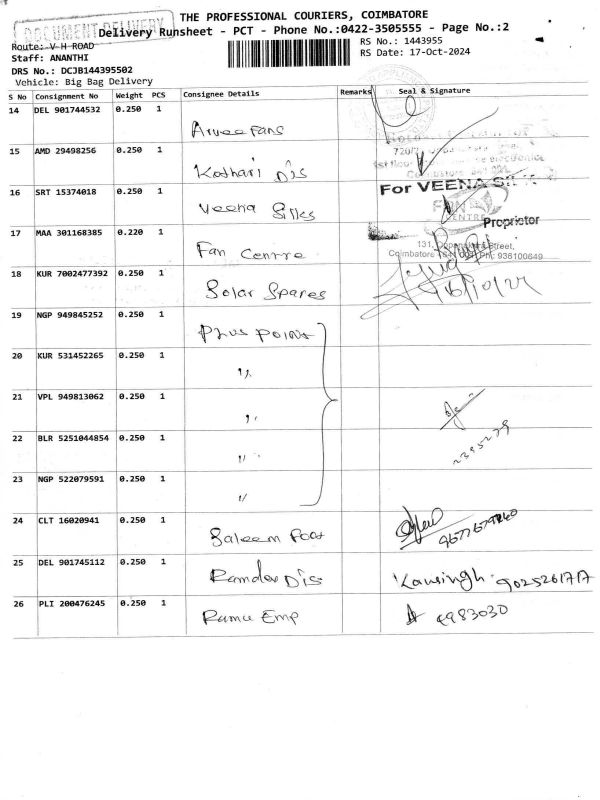 THE PROFESSIONAL COURIERS, COIMBATORE
DOCUMENT DELIVERY
Delivery Runsheet - PCT - Phone No.:0422-3505555 - Page No.:2
Route: V H ROAD
RS No.: 1443955
Staff: ANANTHI
RS Date: 17-Oct-2024
DRS No.: DCJB144395502
Vehicle: Big Bag Delivery
S No Consignment No Weight PCS Consignee Details Remarks Seal & Signature
14 DEL 901744532 0.250 1 Arvee Fans
15 AMD 29498256 0.250 1 Kothari Dis
16 SRT 15374018 0.250 1 Veena Silks
For VEENA SILK
17 MAA 301168385 0.220 1 Fan Centre
Proprietor
131, Street,
Coimbatore
18 KUR 7002477392 0.250 1 Solar Spares
16/10/24
19 NGP 949845252 0.250 1 Plus Point
20 KUR 531452265 0.250 1 "
21 VPL 949813062 0.250 1 "
22 BLR 5251044854 0.250 1 "
2395279
23 NGP 522079591 0.250 1 "
24 CLT 16020941 0.250 1 Saleem Foot
25 DEL 901745112 0.250 1 Ramdev Dis
26 PLI 200476245 0.250 1 Ramu Emp 4983030